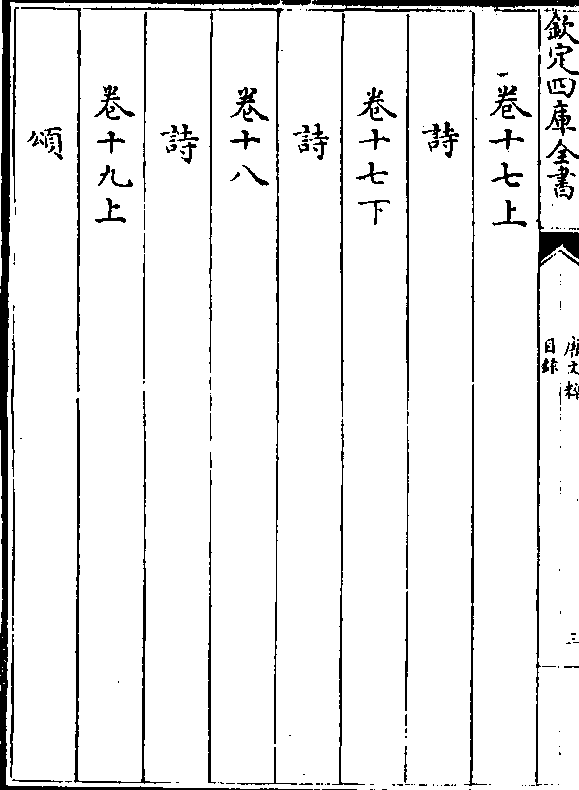 欽定四庫全書
唐文粹
目錄
三
卷十七上
詩
卷十七下
詩
卷十八
詩
卷十九上
頌